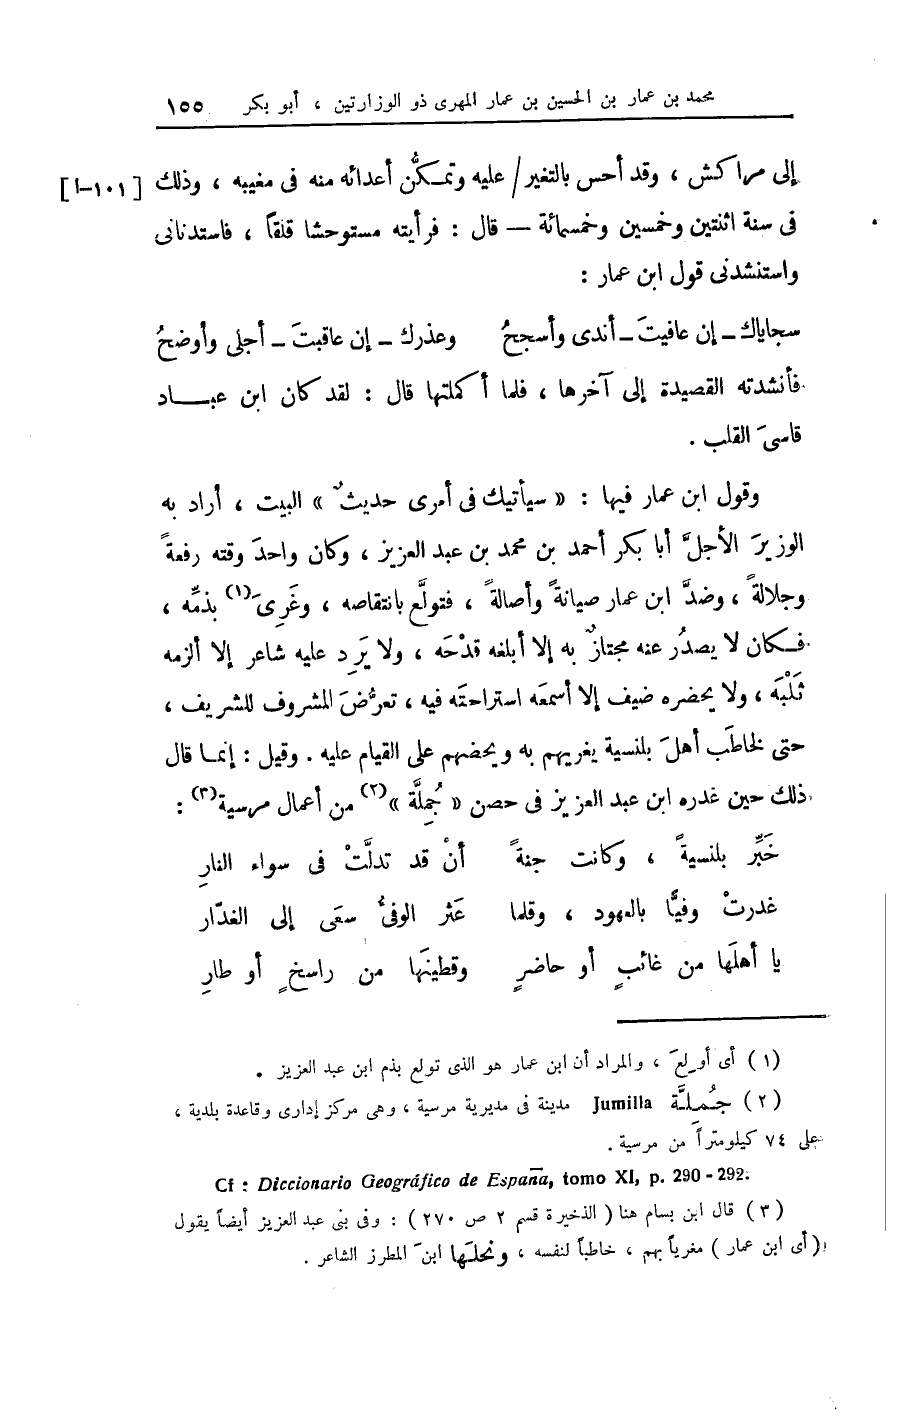 محمد بن عمار بن الحسين بن عمار المهرى ذو الوزارتين ، أبو بكر ١٥٥
إلى مراكش ، وقد أحس بالتغير / عليه وتمكُّن أعدائه منه فى مغيبه ، وذلك [١٠١-ا]
فى سنة اثنتين وخمسين وخمسمائة — قال : فرأيته مستوحشا قلقاً ، فاستدنانى
واستنشدنى قول ابن عمار :
سجاياك ــ إن عافيتَ ــ أندى وأسجحُ وعذرك ــ إن عاقبتَ ــ أجلى وأوضحُ
فأنشدته القصيدة إلى آخرها ، فلما أكملتها قال : لقد كان ابن عبــاد
قاسىَ القلب .
وقول ابن عمار فيها : « سيأتيك فى أمرى حديثٌ » البيت ، أراد به
الوزيرَ الأجلَّ أبا بكر أحمد بن محمد بن عبد العزيز ، وكان واحدَ وقته رفعةً
وجلالةً ، وضدَّ ابن عمار صيانةً وأصالةً ، فتولَّع بانتقاصه ، وغَرِىَ(١) بذمِّه ،
فـكان لا يصدُر عنه مجتازٌ به إلا أبلغه قدْحَه ، ولا يَرِد عليه شاعر إلا ألزمه
ثَلْبَه ، ولا يحضره ضيف إلا أسمعَه استراحتَه فيه ، تعرُّضَ المشروف للشريف ،
حتى لخاطَب أهلَ بلنسية يغريهم به ويحضهم على القيام عليه . وقيل : إنمـا قال
ذلك حين غدره ابن عبد العزيز فى حصن « جُمِلَّة »(٢) من أعمال مرسية(٣) :
خَبِّر بلنسيةً ، وكانت جنةً أنْ قد تدلَّتْ فى سواء النارِ
غدرتْ وفيًّا بالعهود ، وقلما عَثر الوفىُّ سعَى إلى الغدّار
يا أهلَها من غائبٍ أو حاضرٍ وقطينَها من راسخٍ أو طارِ
(١) أى أولِعَ ، والمراد أن ابن عمار هو الذى تولع بذم ابن عبد العزيز .
(٢) جُـمِـلَّة Jumilla مدينة فى مديرية مرسية ، وهى مركز إدارى وقاعدة بلدية ،
على ٧٤ كيلومتراً من مرسية .
Cf : Diccionario Geográfico de España, tomo XI, p. 290 - 292.
(٣) قال ابن بسام هنا ( الذخيرة قسم ٢ ص ٢٧٠ ) : وفى بنى عبد العزيز أيضاً يقول
( أى ابن عمار ) مغرياً بهم ، خاطباً لنفسه ، ونحلَـها ابنَ المطرز الشاعر .